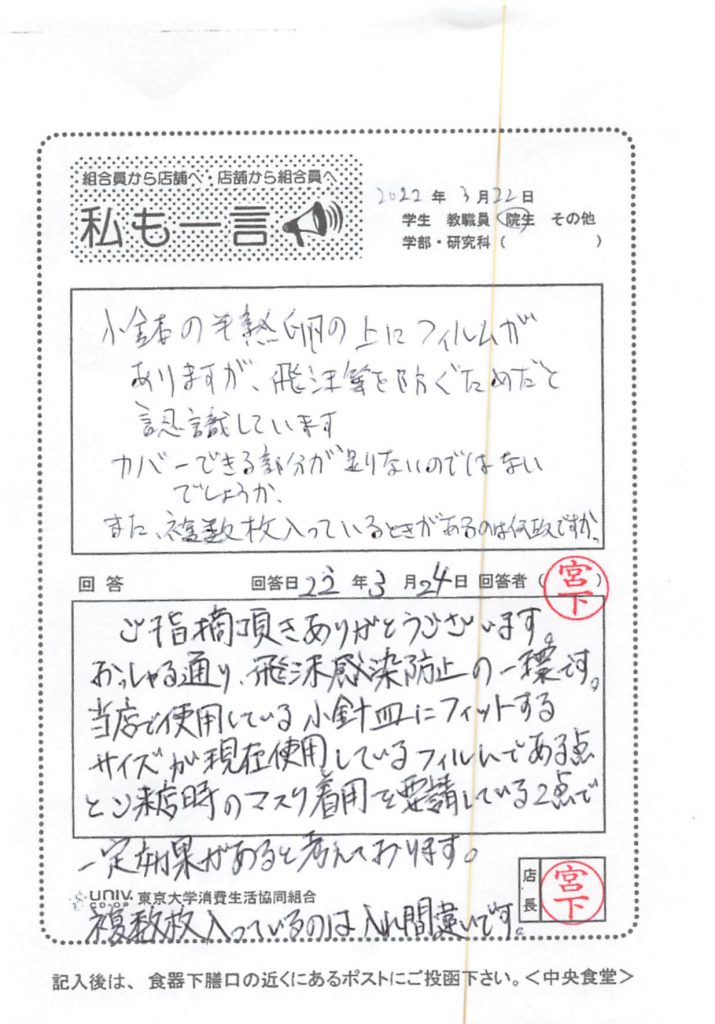 組合員から店舗へ・店舗から組合員へ
私も一言
2022年3月22日
学生 教職員 院生 その他
学部・研究科( )
小鉢の半熟卵の上にフィルムが
ありますが、飛沫等を防ぐためだと
認識しています
カバーできる部分が足りないのではない
でしょうか、
また、複数枚入っているときがあるのは何故ですか。
回答 回答日22年3月24日 回答者(宮下)
ご指摘頂きありがとうございます。
おっしゃる通り、飛沫感染防止の一環です。
当店で使用している小針皿にフィットする
サイズが現在使用しているフィルムである点
とご来店時のマスク着用を要請している2点で
一定効果があると考えております。
店長 宮下
UNIV. CO-OP 東京大学消費生活協同組合
複数枚入っているのは入れ間違いです。
記入後は、食器下膳口の近くにあるポストにご投函下さい。<中央食堂>